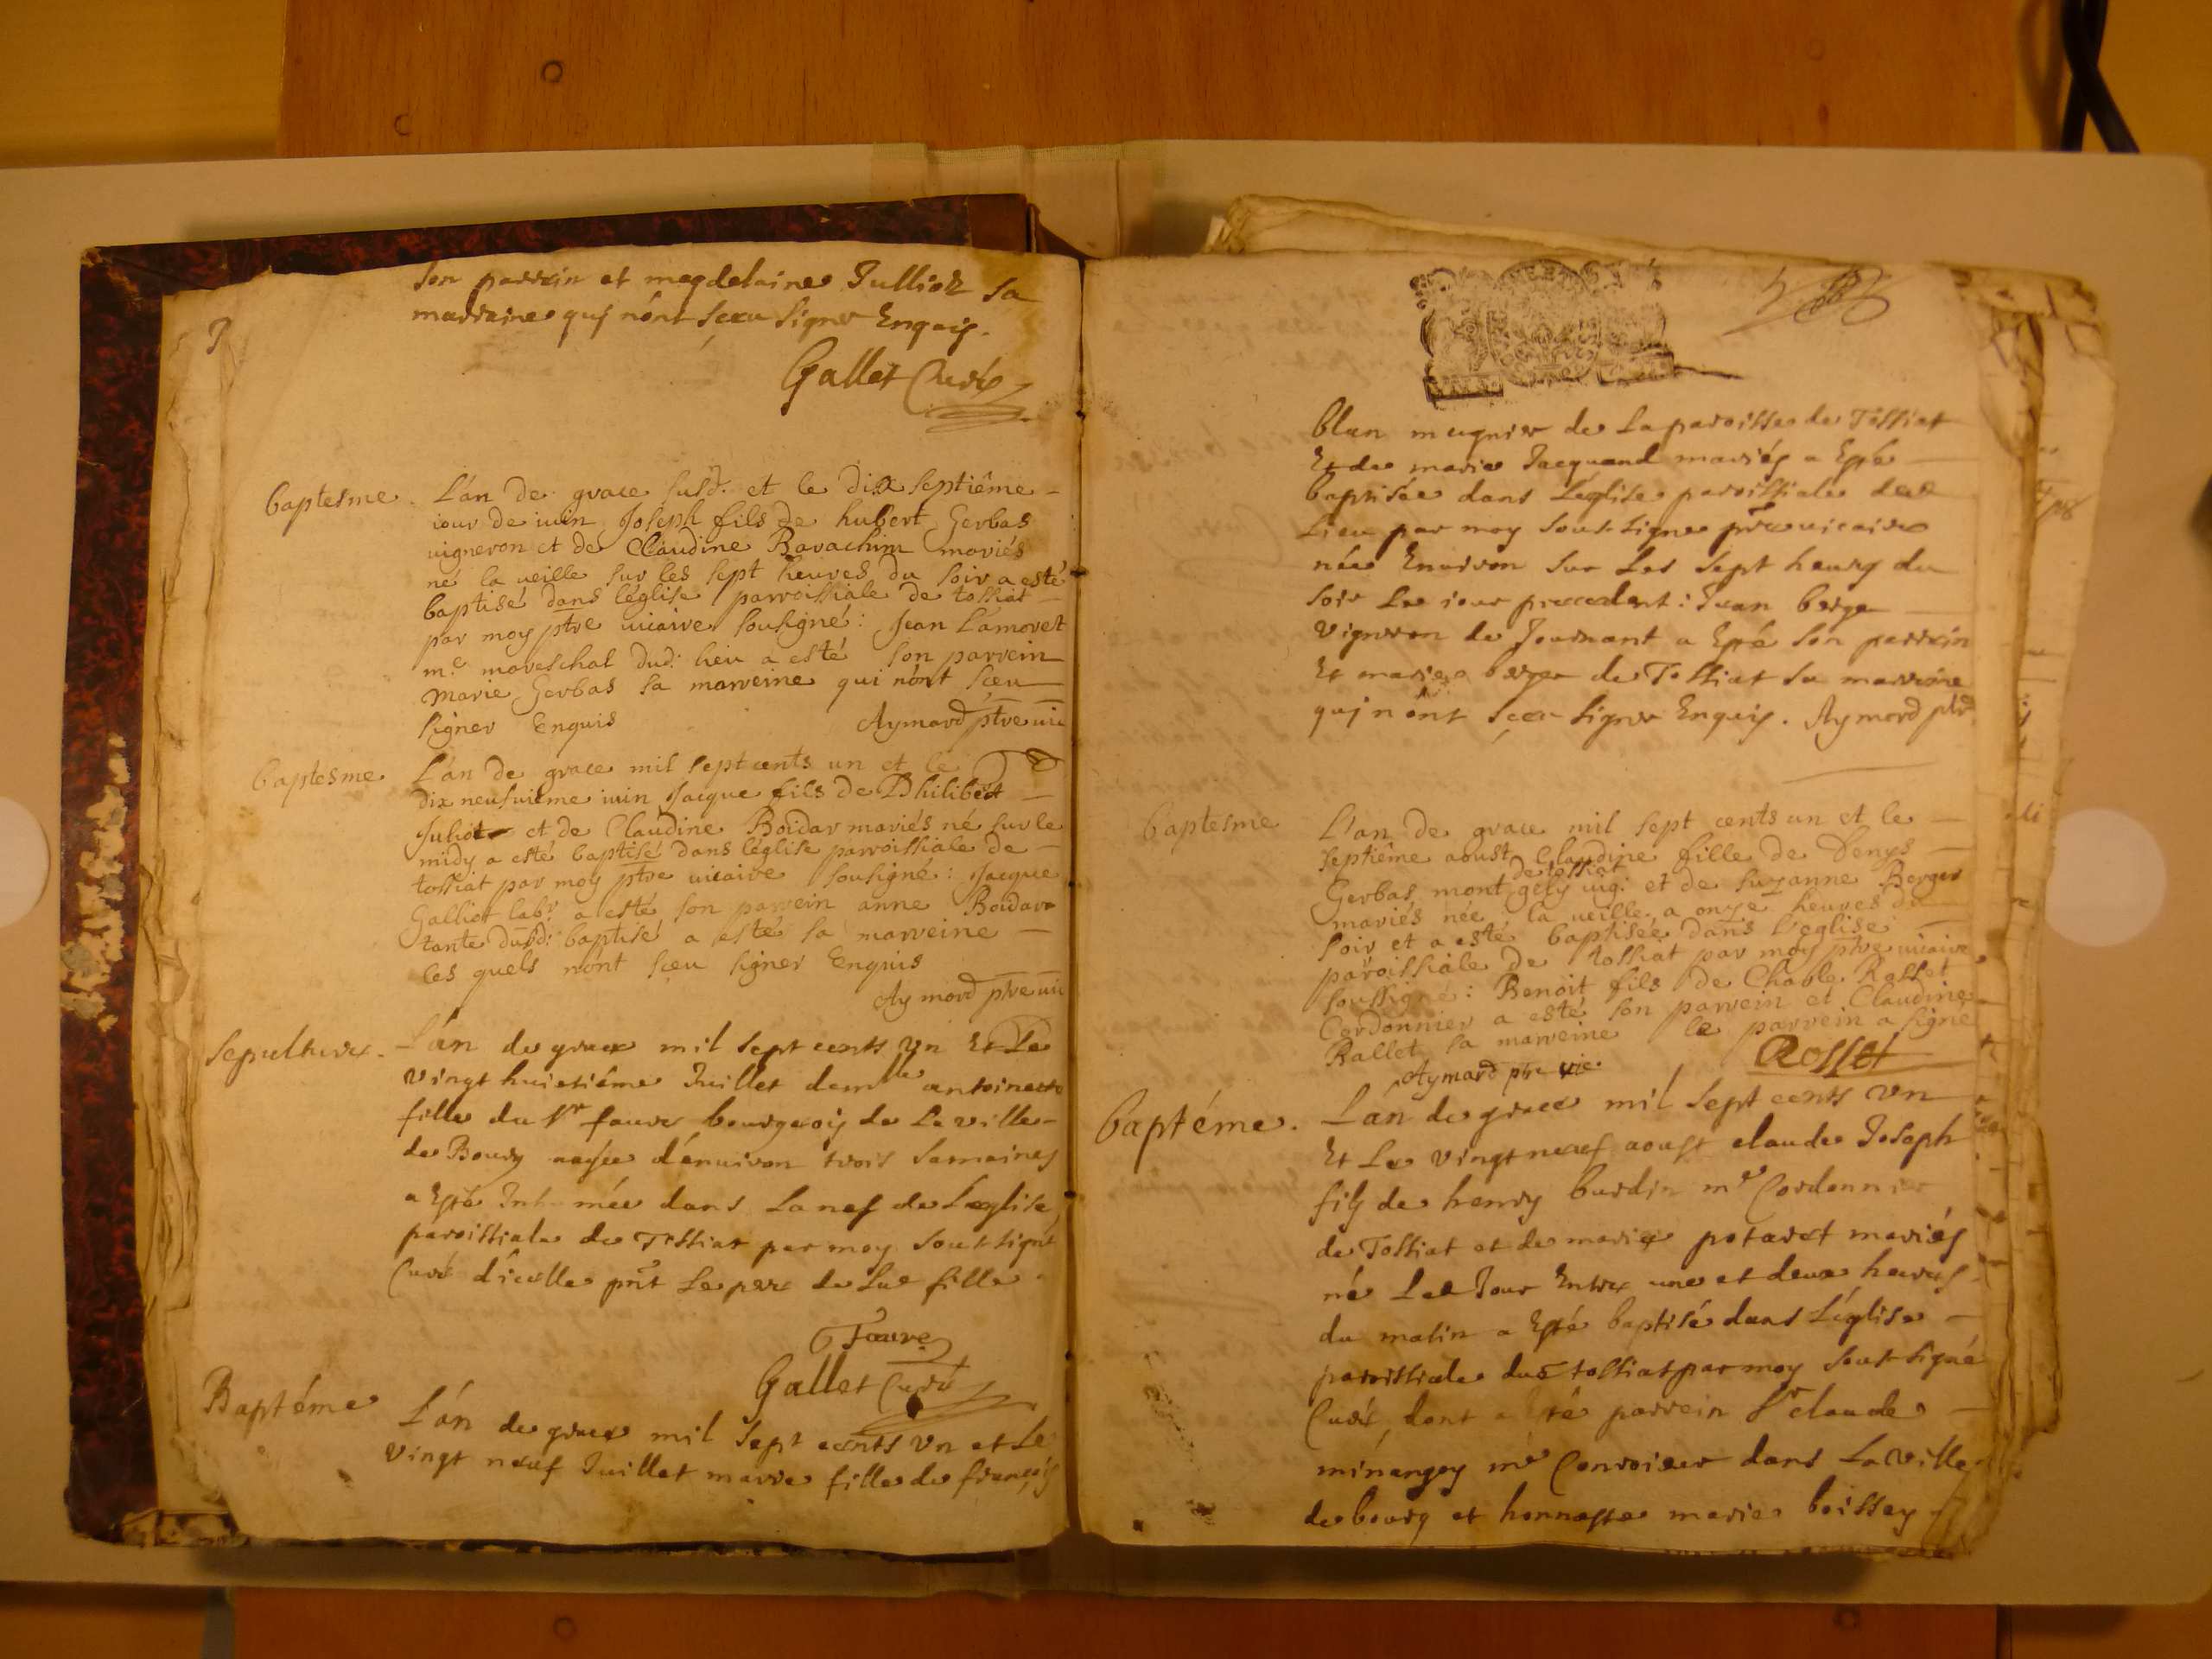 son parrain et magdelaine Julliot sa
marraine quj n'ônt sceu signer Enquis.
Gallet Curé
baptesme. L'an de grace susd. et le dix septiême
iour de iuin Joseph fils de hubert Gerbas
uigneron et de Claudine Barachim mariés
né la ueille sur les sept heures du soir a esté
baptisé dans leglise parroissiale de tossiat
par moy ptre uicaire sousigné: Jean Lamoret
me. mareschal dud: lieu a esté son parrein
Marie Gerbas sa marreine qui n'ônt sceu
signer Enquis Aymard ptre uic
baptesme L'an de grace mil sept cents un et le
dix neufuieme iuin Jacque fils de Philibert
Juliot et de Claudine Boidar mariés né sur le
midy a esté baptisé dans l'eglise parroissiale de
tossiat par moy ptre uicaire sousigné: Jacque
Galliot labr. a esté son parrein anne Boidar
tante dudd: baptisé a esté la marreine
les quels n'ont sceu signer Enquis
Aymard ptre uic
Sepulture. L'an de grace mil sept cents Vn Et Le
vingt huietiême Juillet demlle antoinette
fille du Sr faure bourgeois de La ville
de Bourg aagée d'enuiron trois semaines
a Esté Inhumée dans La nef de L'eglise
paroissiale de Tossiat par moy soussigné
Curé d'icelle pnt Le pere de lad fille
Faure
Gallet Curé
Baptéme L'ân de grace mil sept cents Vn et Le
Vingt neuf Juillet marie fille de françois
blan meugnier de La paroisse de Tossiat
Et de marie Jacquand mariés a Esté
baptisée dans L'église paroissiale dud
Lieu par moy sous-signe ptre uicaire
née Enuiron sur Les sept heures du
soir Le iour precedent: Jean berge
Vigneron de Journant a Esté son parrain
Et marie berger de Tossiat sa marraine
quj n'ônt sceu signer Enquis. Aymard ptre
baptesme L'an de grace mil sept cents un et le
septiême aoust Claudine fille de Denys
de tossiat
Gerbas, mont gely uig: et de suzanne Berger
mariés née la ueille a onze heures du
soir et a esté baptisée dans l'eglise
paroissiale de tossiat par moy ptre uicaire
soussigné: Benoit fils de Chable Rosset
Cordonnier a esté son parrein et Claudine
Ballet sa marreine le parrein a signé
Aymard ptre vic. Rosset
baptéme. L'an de grace mil sept cents Vn
Et Le Vingt neuf aoust claude Joseph
fils de henry burdin me Cordonnier
de Tossiat et de marie potaret mariés
né Led Jour Entre une et deux heures
du matin a Esté baptisé dans L'église
paroissiale dud tossiat par moy sous signé
Curé, dont a esté parrein Sr claude
minangoy me Conroieur dans La Ville
de bourg et honneste marie boissey